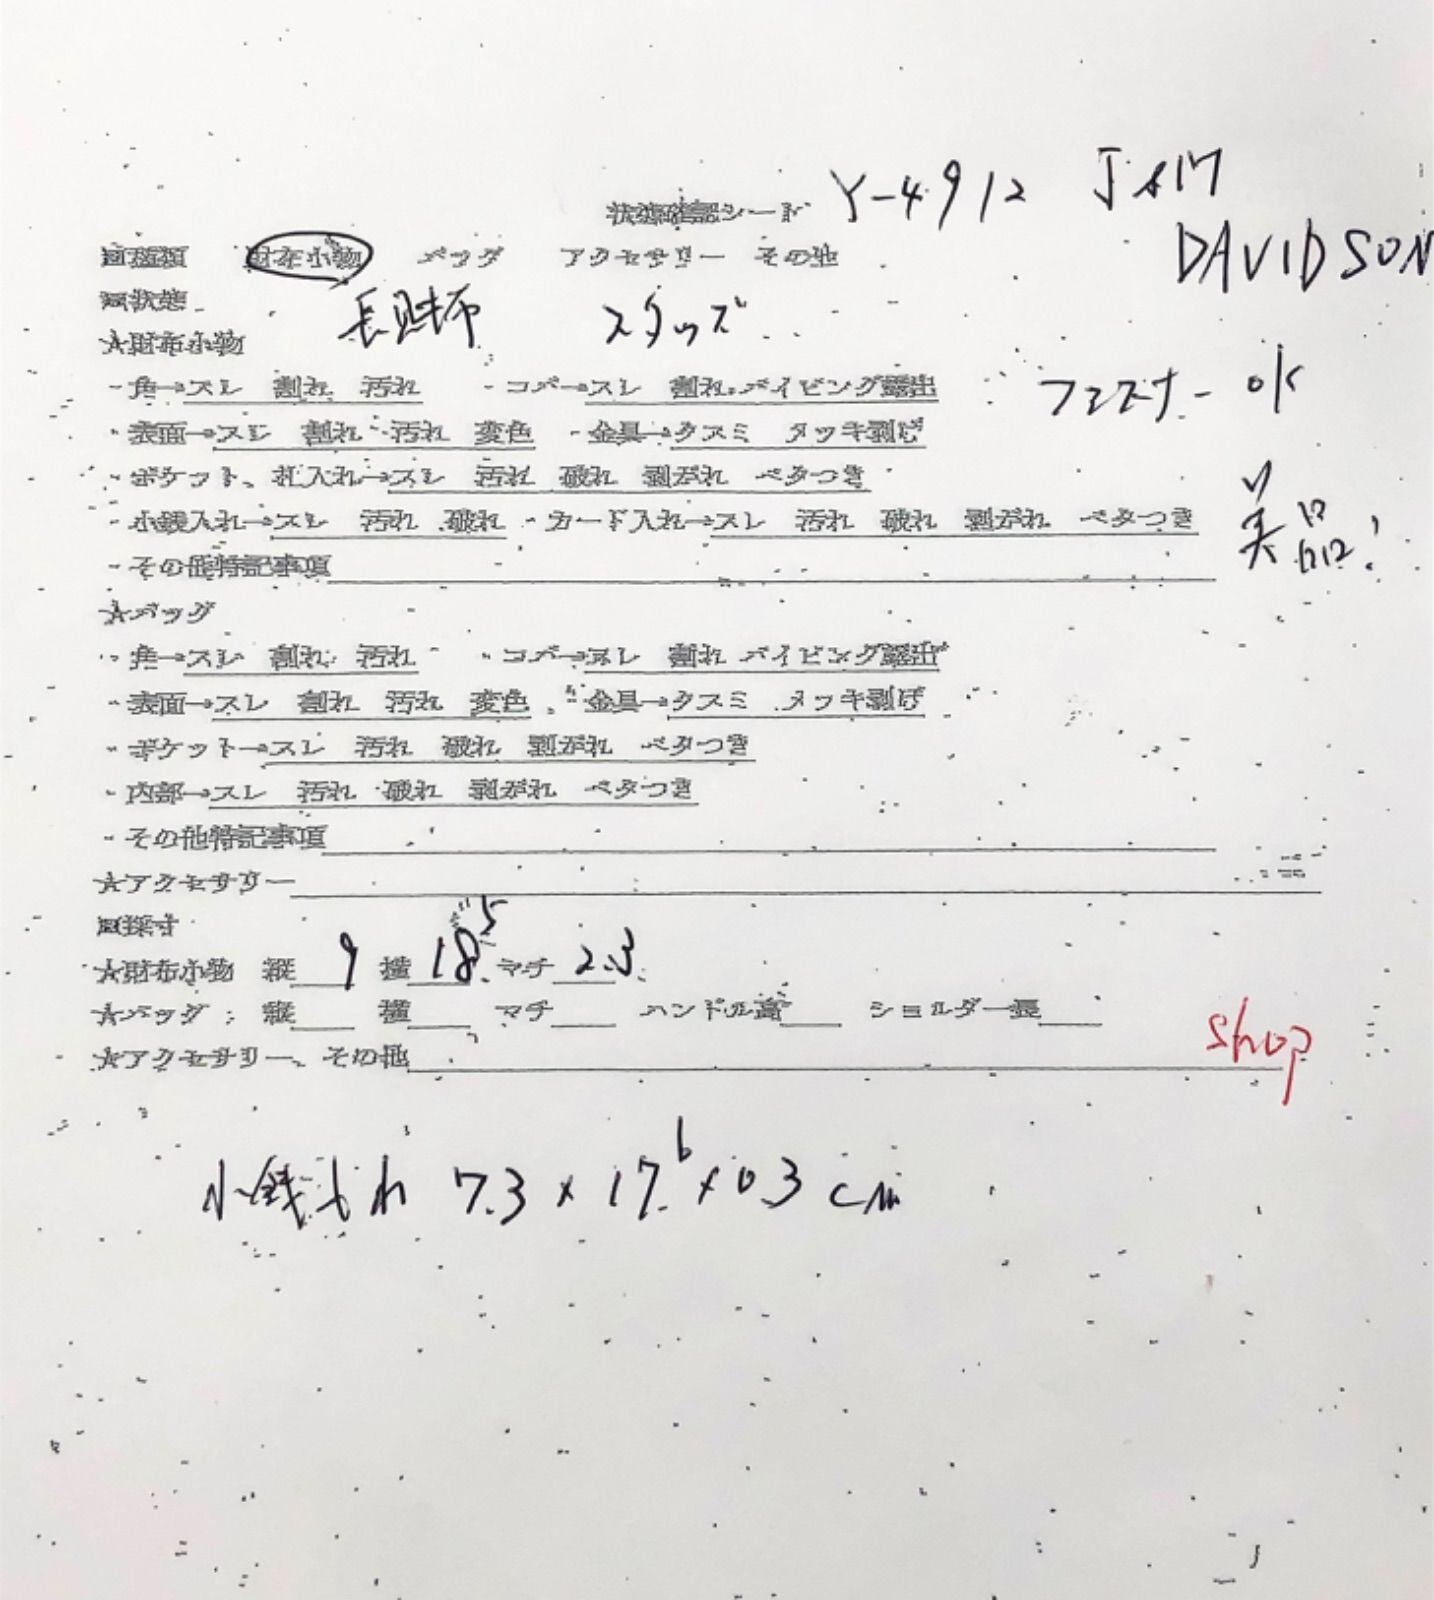 状態確認シート Y-4912 J&M
DAVIDSON
□種類 財布小物 バッグ アクセサリー その他
□状態 長財布 スタッズ
★財布小物
・角→スレ 割れ 汚れ ・コバ→スレ 割れ パイピング露出 ファスナー OK
・表面→スレ 割れ 汚れ 変色 ・金具→クスミ メッキ剥げ
・ポケット、札入れ→スレ 汚れ 破れ 剥がれ ベタつき
・小銭入れ→スレ 汚れ 破れ ・カード入れ→スレ 汚れ 破れ 剥がれ ベタつき 美品!
・その他特記事項
★バッグ
・角→スレ 割れ 汚れ ・コバ→スレ 割れ パイピング露出
・表面→スレ 割れ 汚れ 変色 ・金具→クスミ メッキ剥げ
・ポケット→スレ 汚れ 破れ 剥がれ ベタつき
・内部→スレ 汚れ 破れ 剥がれ ベタつき
・その他特記事項
★アクセサリー
□採寸
★財布小物 縦 9 横 18.5 マチ 2.3
★バッグ: 縦 横 マチ ハンドル高 ショルダー長
★アクセサリー、その他
shop
小銭入れ 7.3×17.6×0.3cm